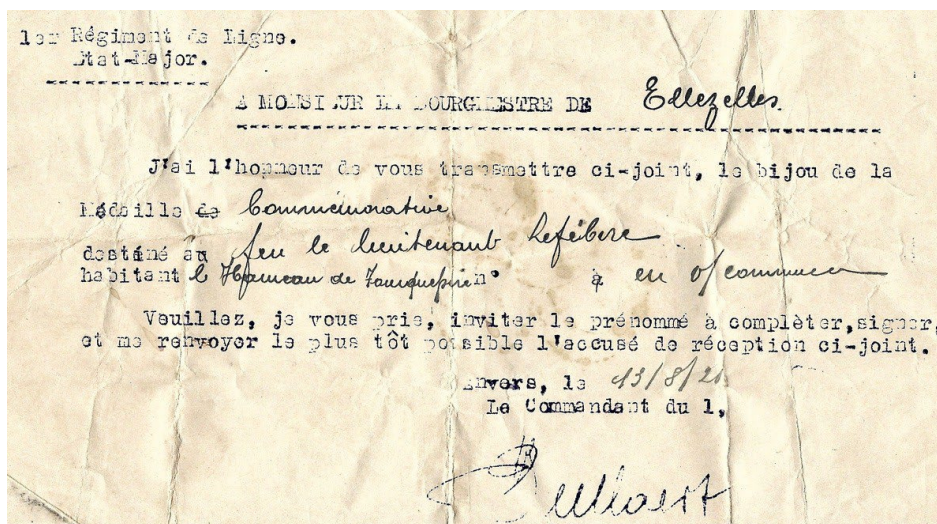 1er Régiment de Ligne.
Etat-Major.
A MONSIEUR LE BOURGMESTRE DE Ellezelles.
J'ai l'honneur de vous transmettre ci-joint, le bijou de la
Médaille de Commémorative
destiné au feu le lieutenant Lefébvre
habitant l Hameau de n° à en s/commune
Veuillez, je vous prie, inviter le prénommé à complèter,signer,
et me renvoyer le plus tôt possible l'accusé de réception ci-joint.
Anvers, le 13/8/21
Le Commandant du 1,